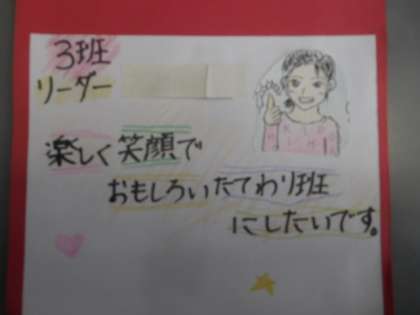 3班
リーダー
楽しく笑顔で
おもしろいたてわり班
にしたいです。